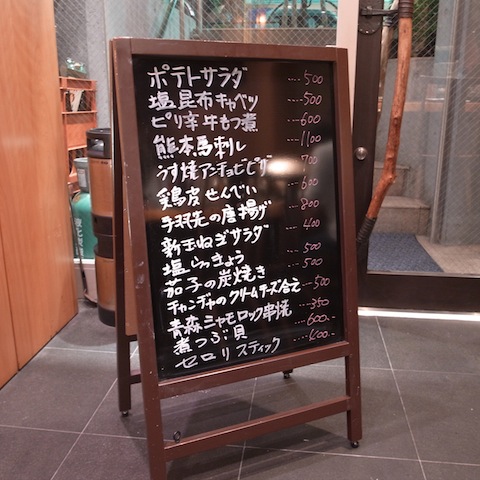 ポテトサラダ ....500
塩昆布キャベツ ....500
ピリ辛牛もつ煮 ....600
熊本馬刺し ....1100
うす焼アンチョビピザ ....700
鶏皮せんべい ....600
手羽先の唐揚げ ....800
新玉ねぎサラダ ....400
塩らっきょう ....500
茄子の炭焼き ....500
チャンヂャのクリームチーズ合え ....500
青森シャモロック串焼 ....350
煮つぶ貝 ....600
セロリスティック ....400